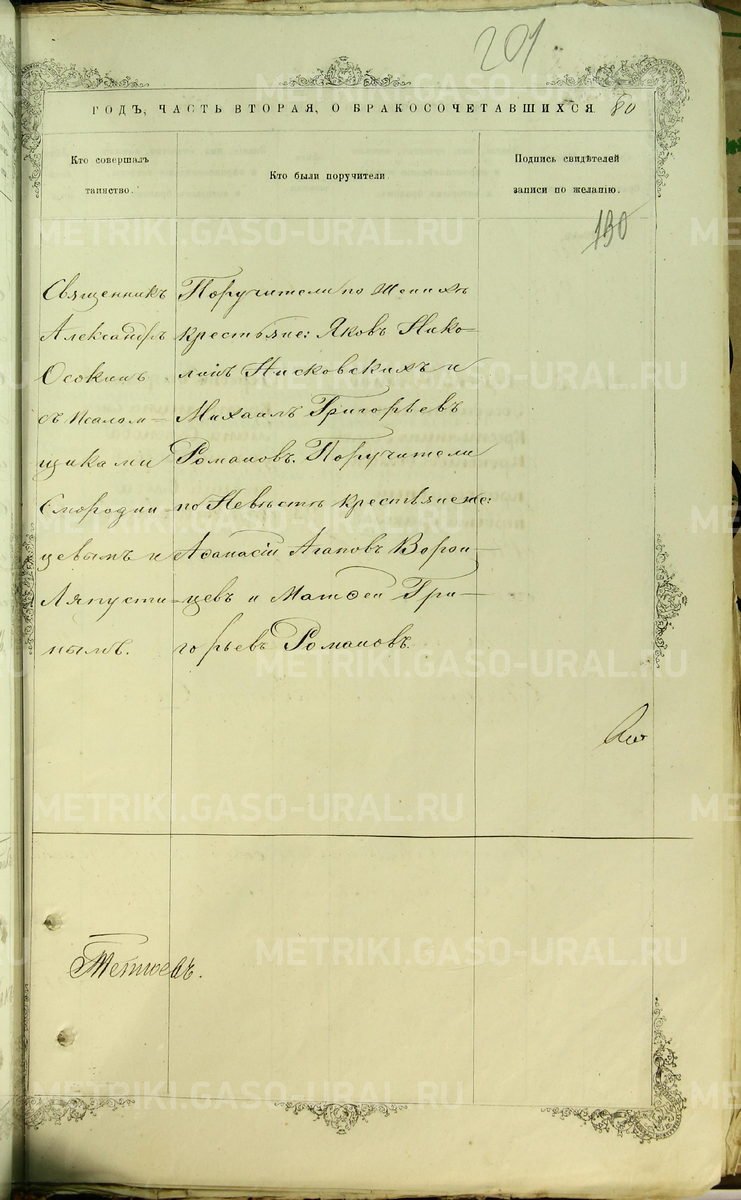 201
ГОДЪ, ЧАСТЬ ВТОРАЯ, О БРАКОСОЧЕТАВШИХСЯ. 80
Кто совершалъ
таинство.
Кто были поручители.
Подпись свидѣтелей
записи по желанію.
190
Священникъ
Александръ
Осокинъ
съ Псалом-
щиками
Смородин-
цевымъ и
Ляпусти-
нымъ.
Поручители по Женихѣ
крестьяне: Яковъ Нико-
лаевъ Писковскихъ и
Михаилъ Григорьевъ
Романовъ. Поручители
по Невѣстѣ крестьяне же:
Аѳанасій Агаповъ Ворон-
цевъ и Матѳей Гри-
горьевъ Романовъ.
METRIKI.GASO-URAL.RU